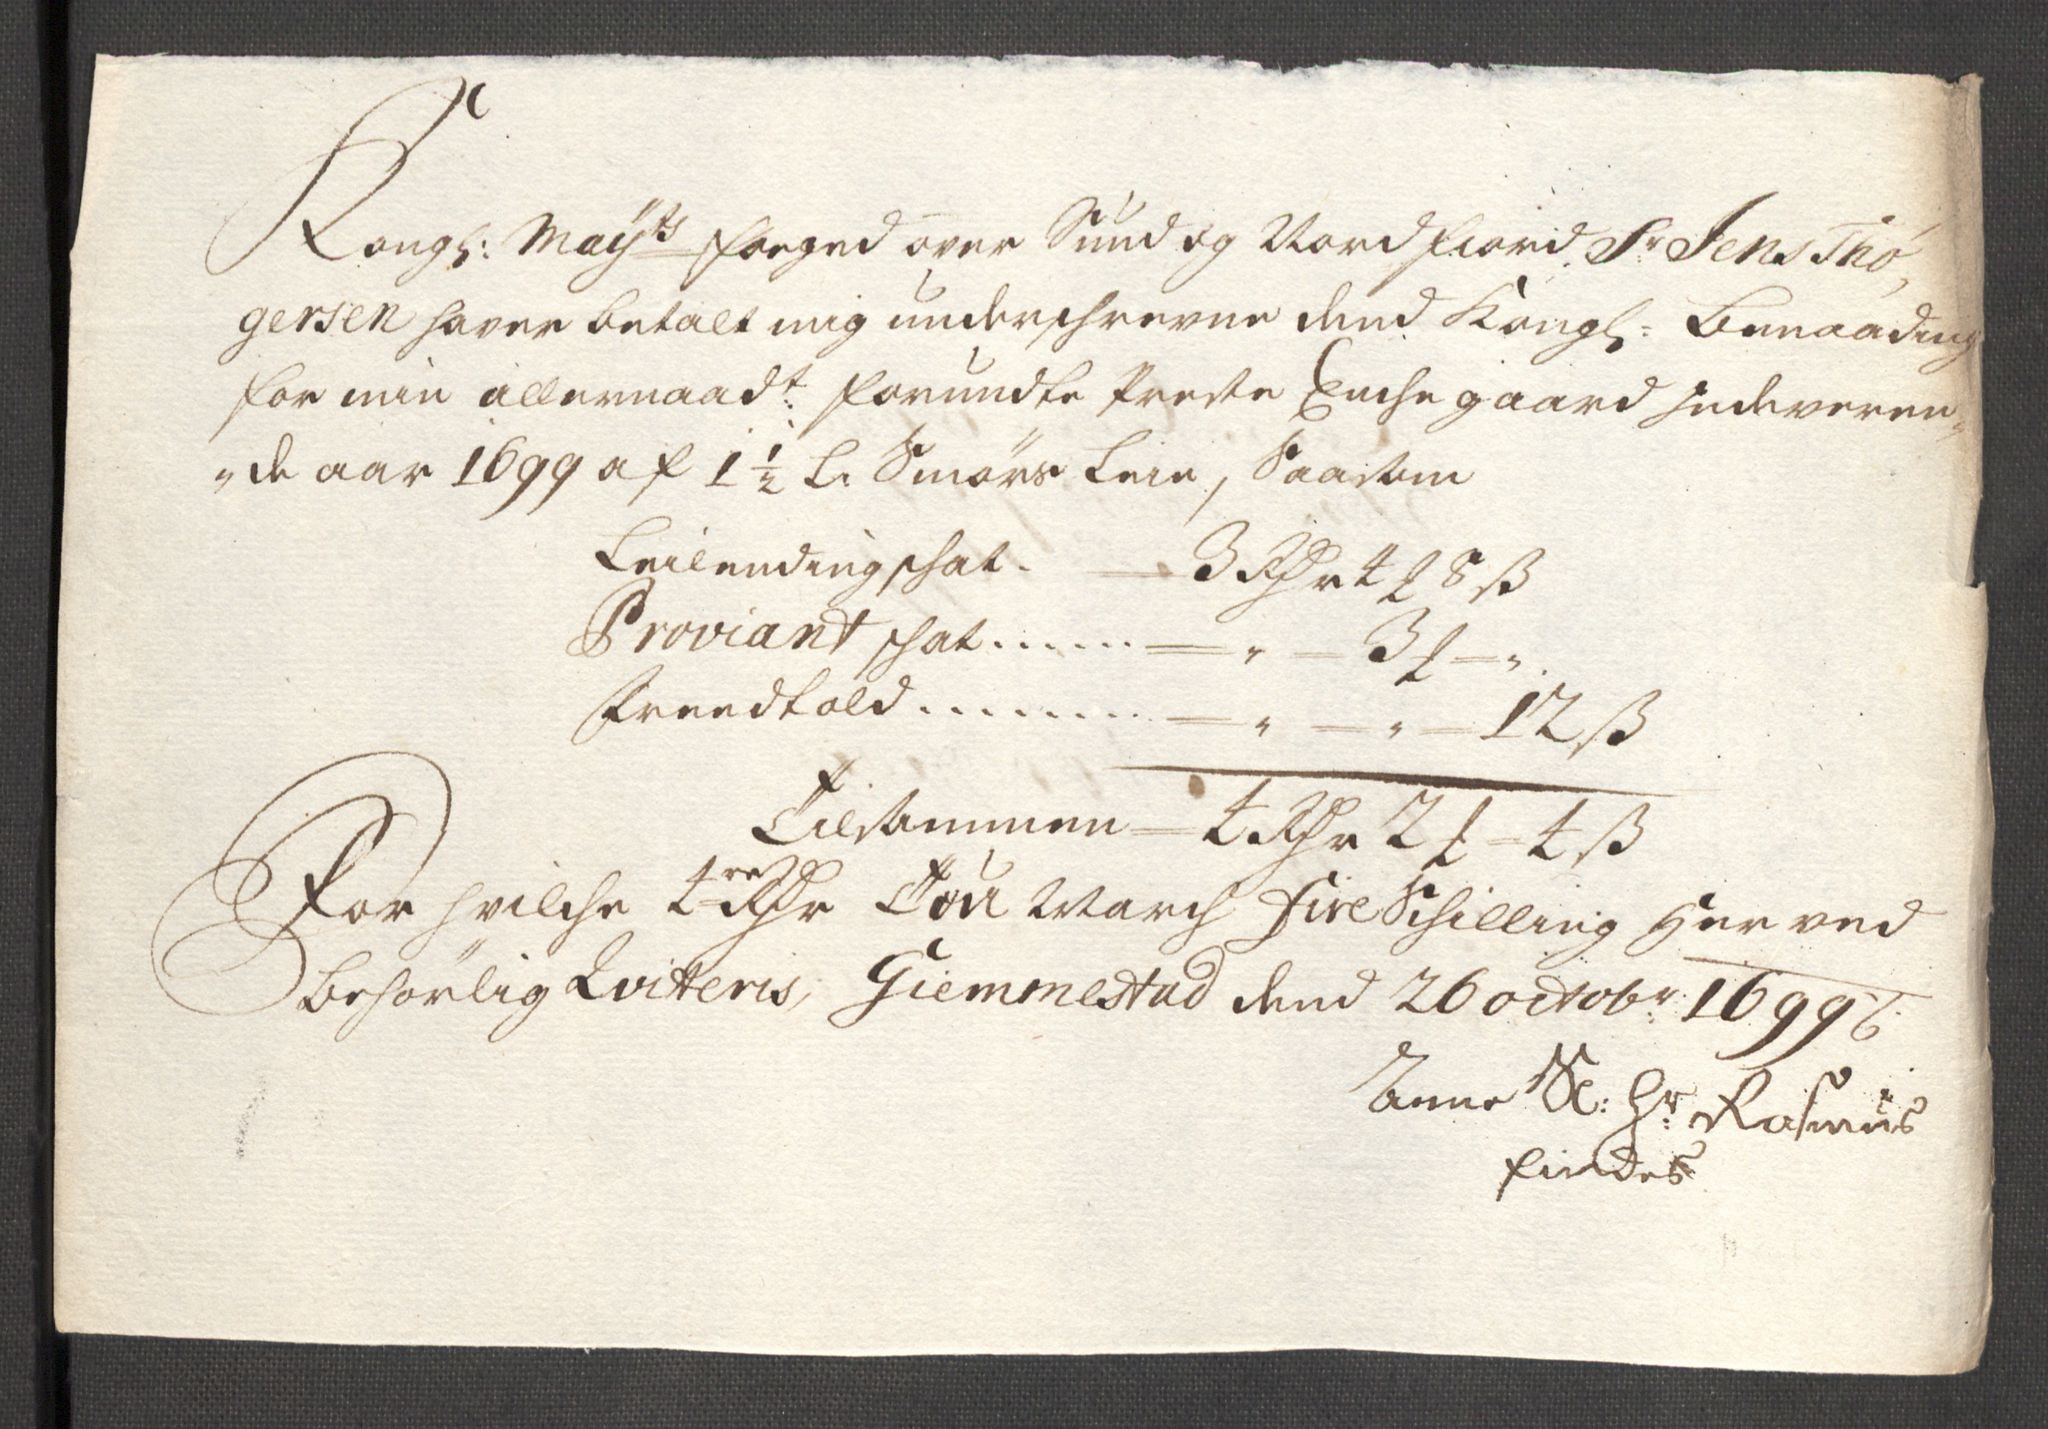 Kongl: Mayts foeged over Sund og Nordfiord Sr Jens Thø,
gersen haver betalt mig underschrevne dend Kongl: Benaading
for min allernaadt: forundte Preste Enche gaard Indeveren„
„de aar 1699 af 1½ L. Smørs Leie, Saasom
Leilendingschat. — 3 Rdr 4 ₰ 8 ß
Proviant schat...... — „ — 3 ₰ — „
Treedtold......... — „ — „ — 12 ß
Tilsammen — 4 Rdr 2 ₰ — 4 ß
For hvilche 4re Rdr Tou March fire Schilling Her ved
behørlig Qviteris, Giemmestad dend 26 octobr: 1699
Anne Sl: Hr: Rasmus
Findes